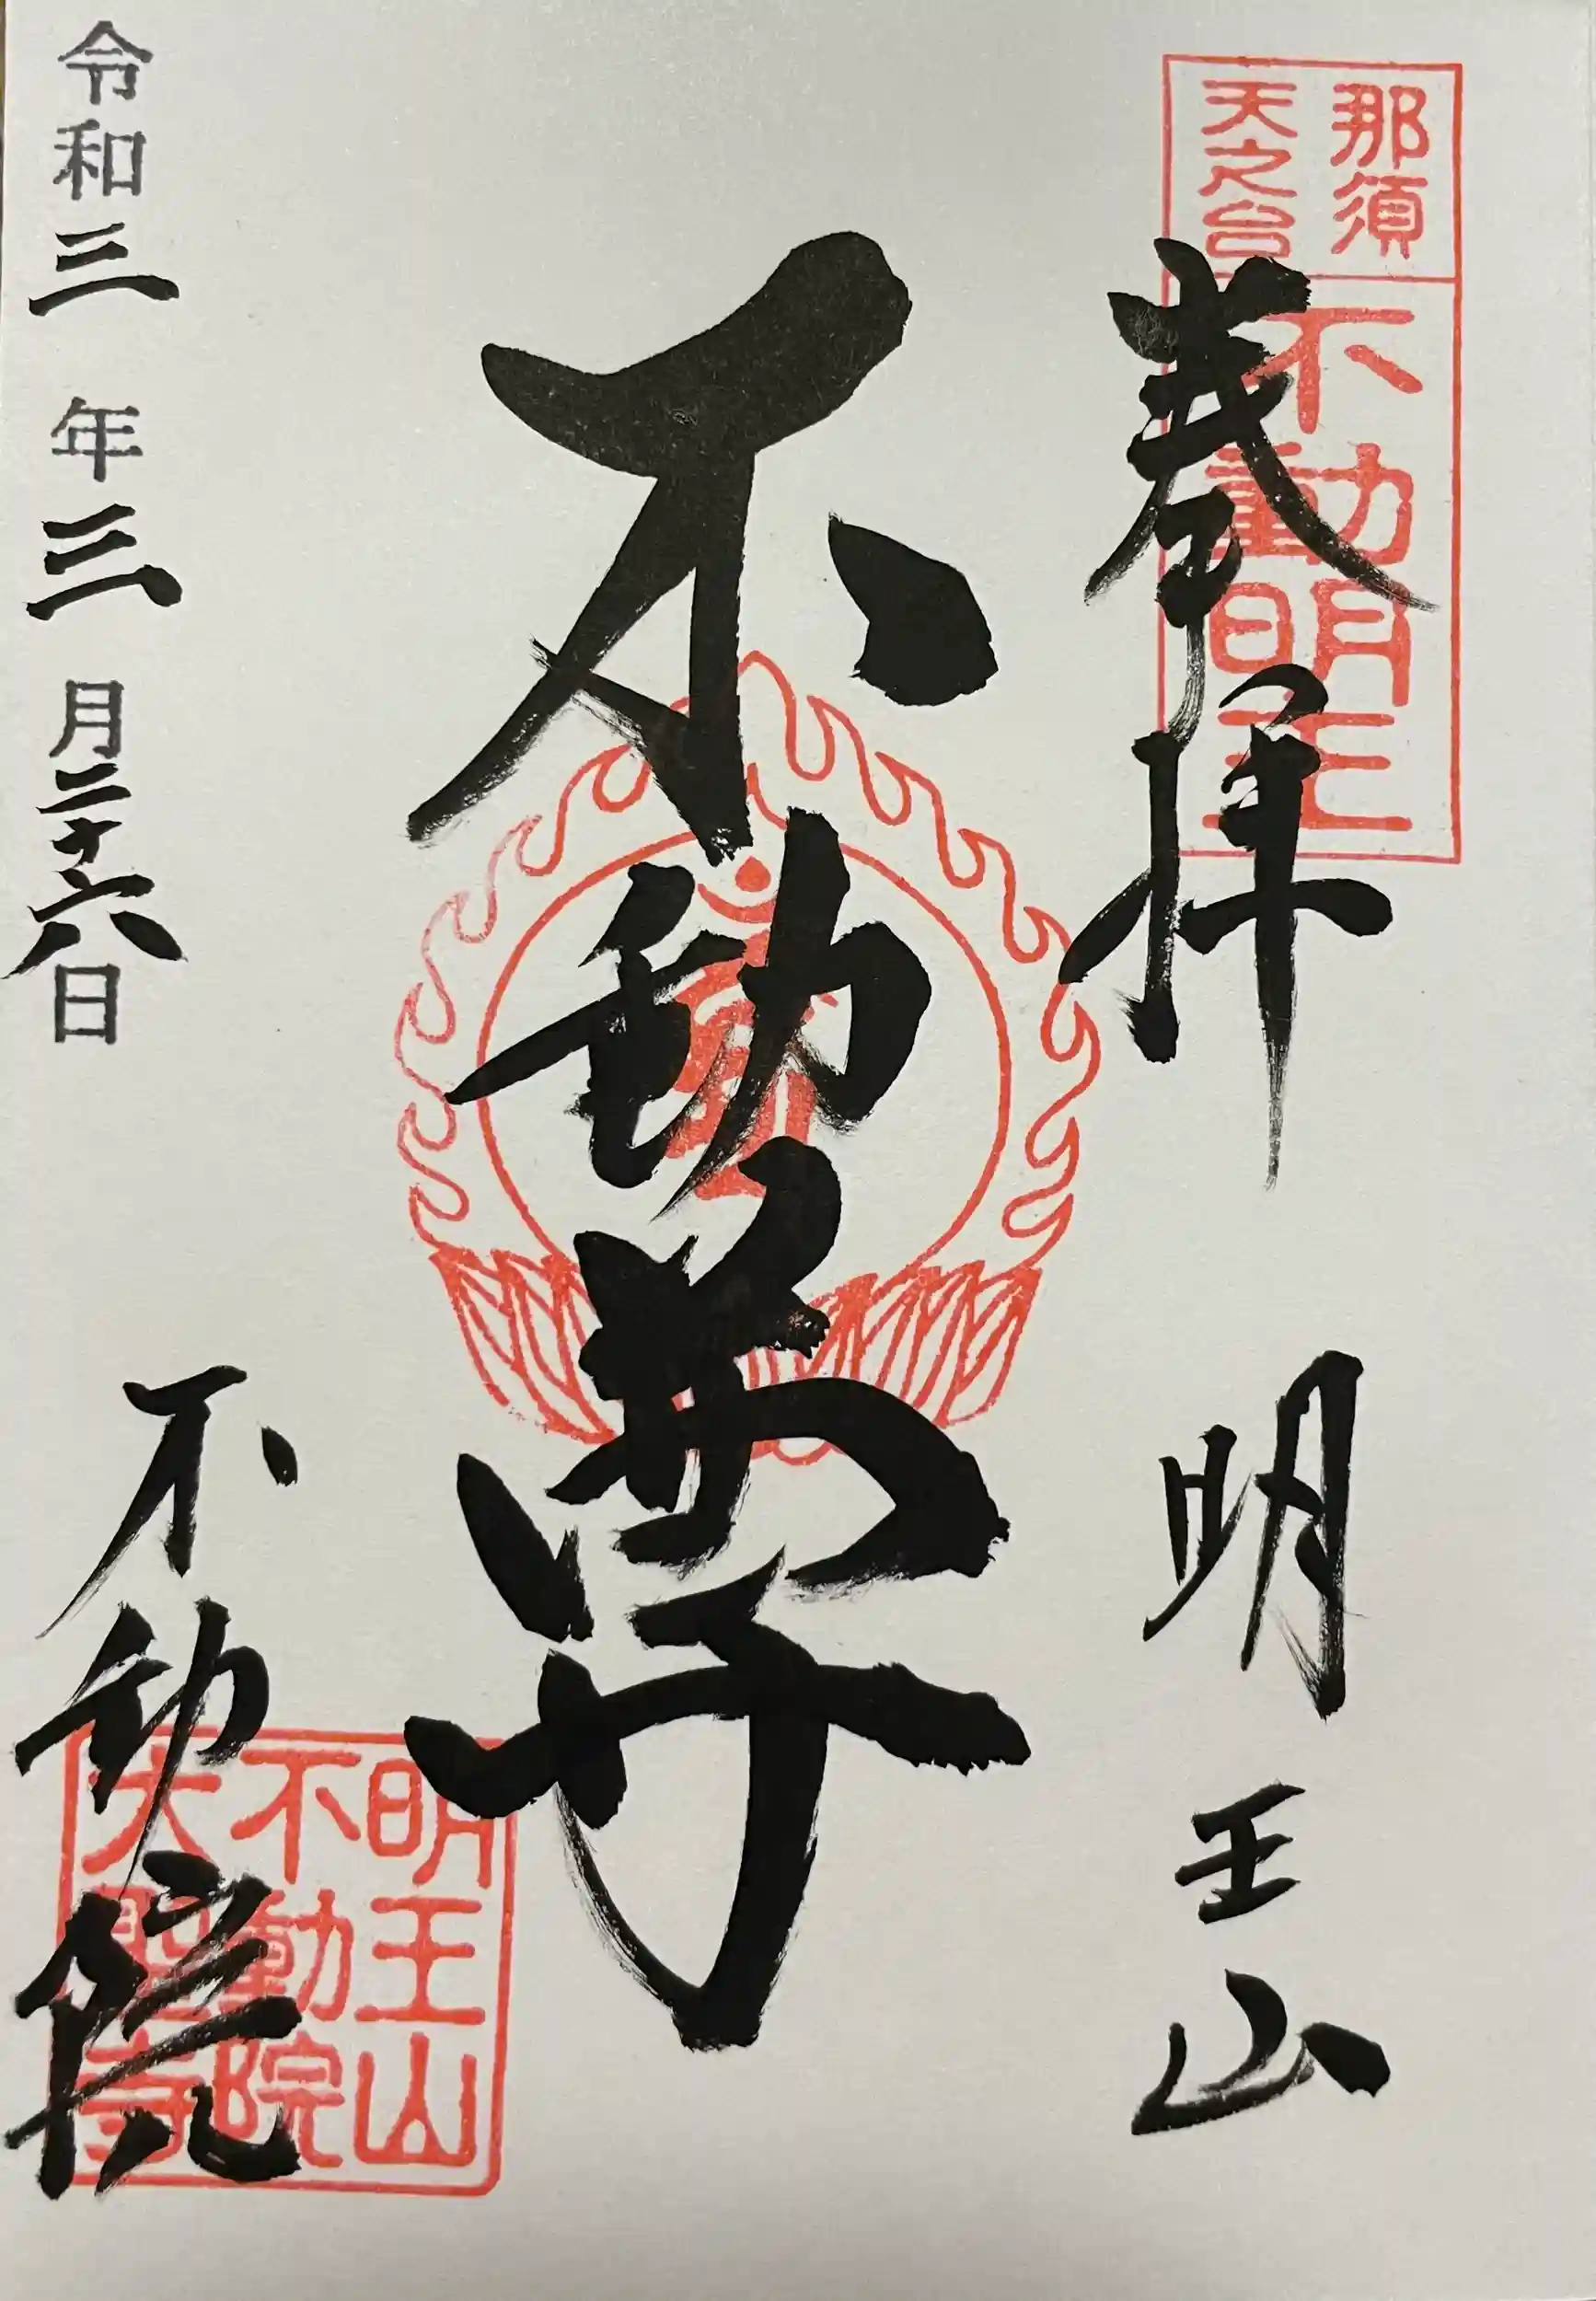 那須
天之台
不動明王
奉拝
明王山
不動尊
令和三年三月二十六日
不動院
明王山
不動院
大聖寺